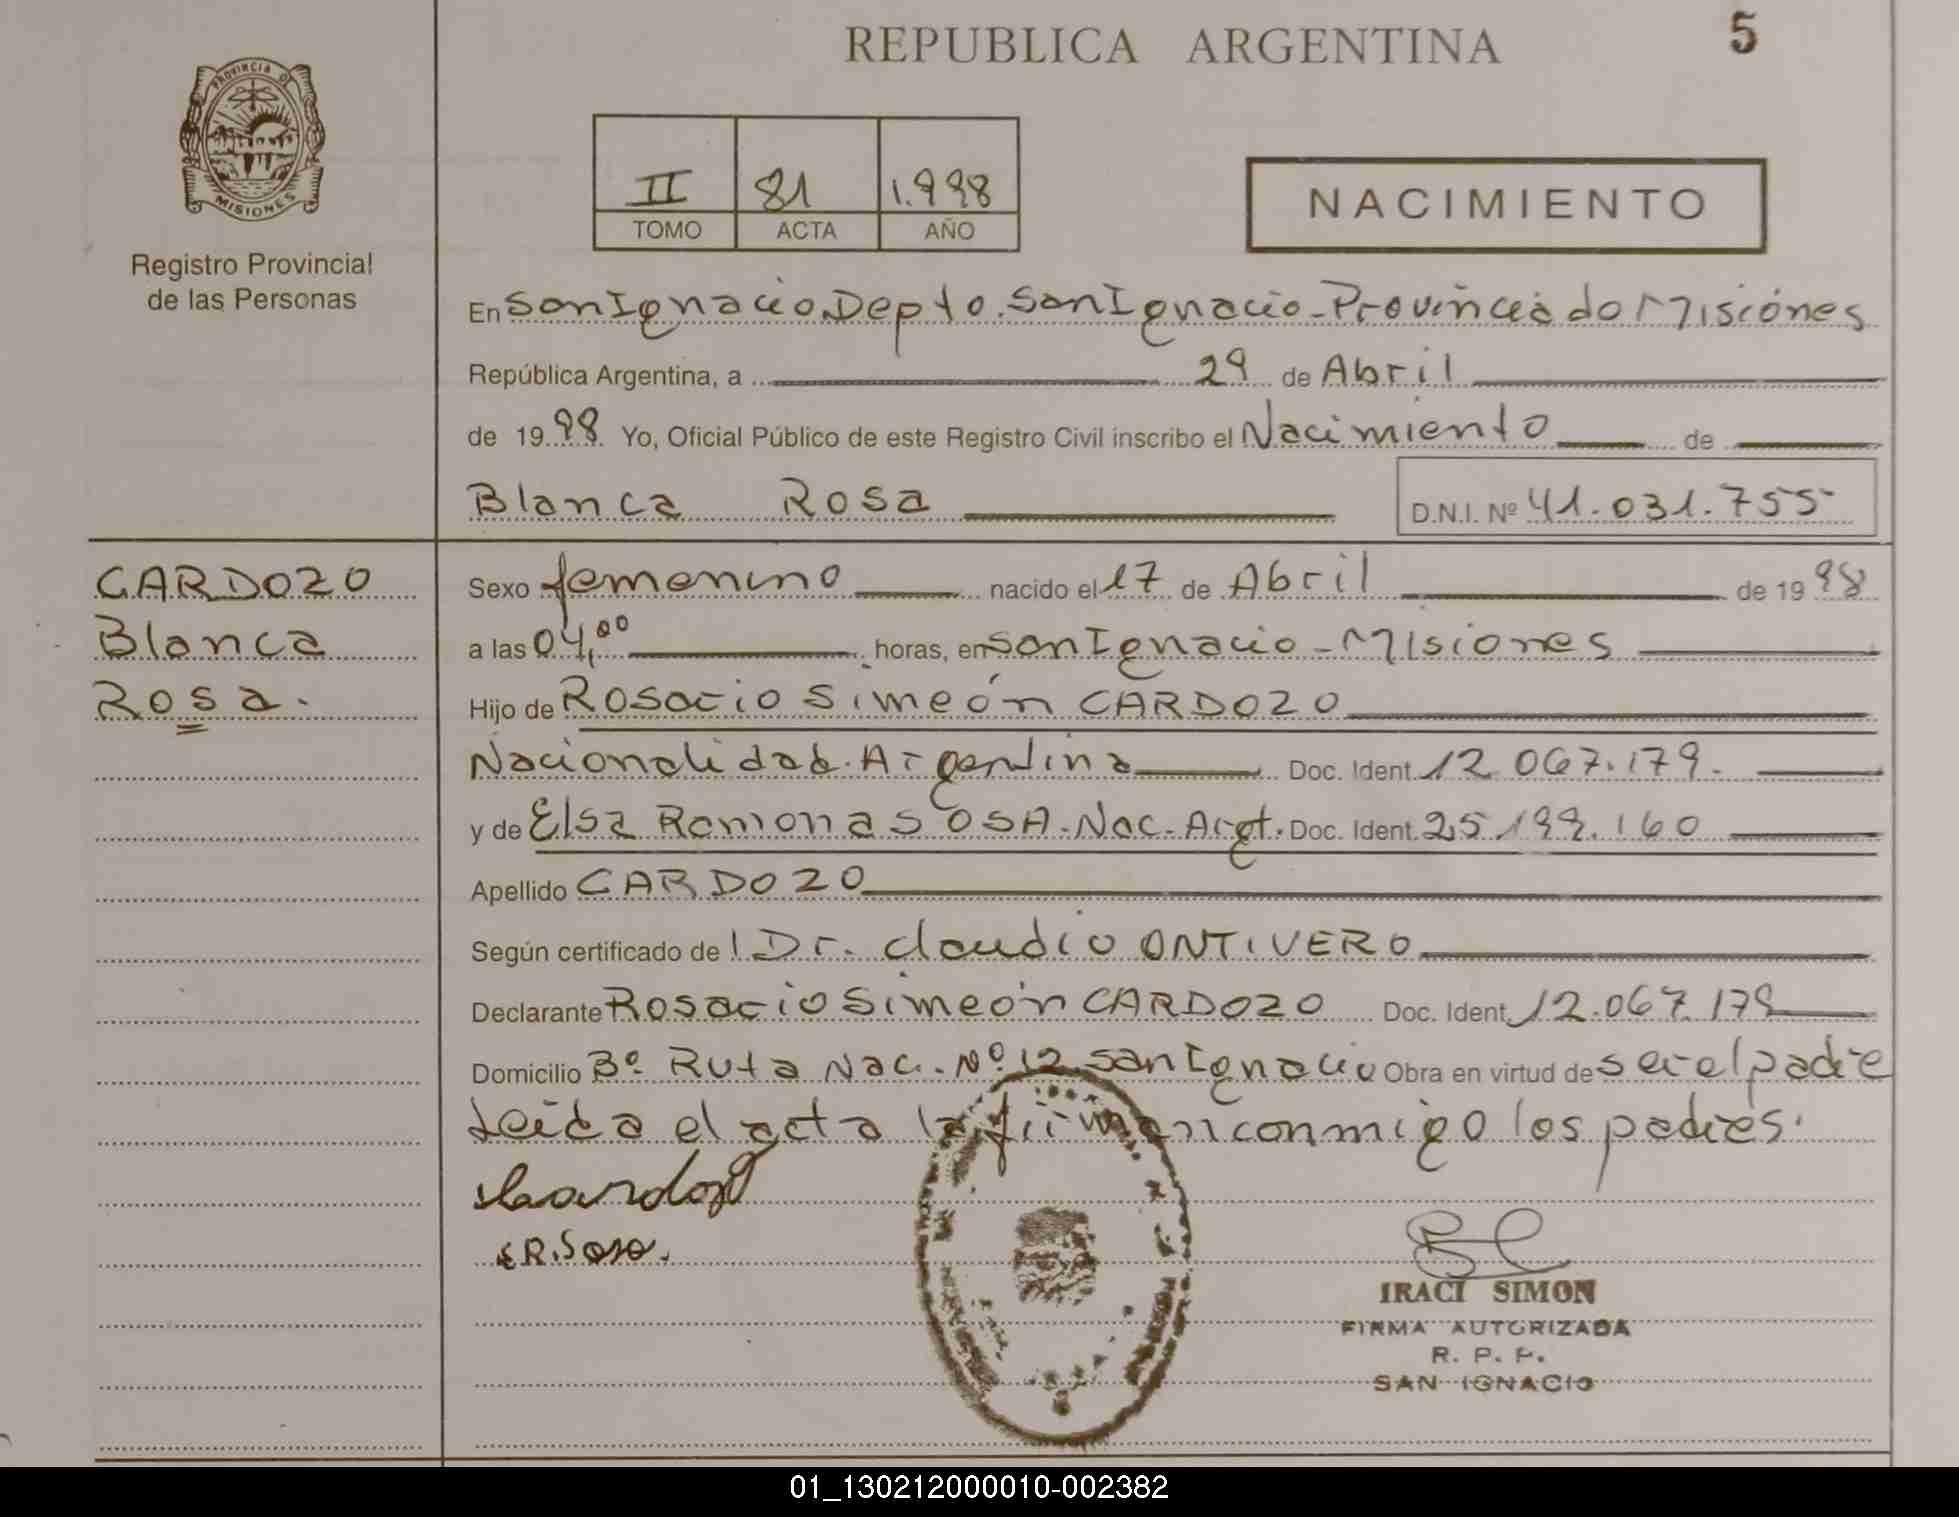 REPUBLICA ARGENTINA
5
PROVINCIA DE
MISIONES
Registro Provincial
de las Personas
II 81 1.998
TOMO ACTA AÑO
NACIMIENTO
En San Ignacio Depto. San Ignacio - Provincia de Misiones
República Argentina, a 29 de Abril
de 1998 Yo, Oficial Público de este Registro Civil inscribo el Nacimiento de
Blanca Rosa D.N.I. Nº 41.031.755
CARDOZO
Blanca
Rosa.
Sexo femenino nacido el 17 de Abril de 1998
a las 04,00 horas, en San Ignacio - Misiones
Hijo de Rosario Simeón CARDOZO
Nacionalidad Argentina Doc. Ident. 12.067.179.
y de Elsa Ramona SOSA. Nac. Argt. Doc. Ident. 25.199.160
Apellido CARDOZO
Según certificado de l Dr. Claudio ONTIVERO
Declarante Rosario Simeón CARDOZO Doc. Ident. 12.067.179
Domicilio Bº Ruta Nac. Nº 12 San Ignacio Obra en virtud de ser el padre
Leída el acta la firman conmigo los padres.
Cardozo
E R. Sosa.
IRACI SIMON
FIRMA AUTORIZADA
R. P. P.
SAN IGNACIO
01_130212000010-002382